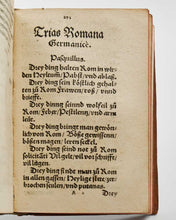 Trias Romana
Germanicè.
Pasquillus.
Drey ding halten Rom in wir-
den Heyltumb/Pabst/und ablaß.
Drey ding sein Köstlich gehal-
ten zu Rom Frawen/roß/und
brieff.
Drey dinng seinnd wolfeil zu
Rom/Feber/Pestilentz/und arm-
leut.
Drey ding bringt man gewon-
lich von Rom/Böße gewissenn/
bösen magenn/lären seckel.
Drey ding sindt nit zu Rom
gezelt/
Drey ding findt man zu Rom
in allen gassen/Heylge stet/zer-
brochen seulen/und putanas.
Drey